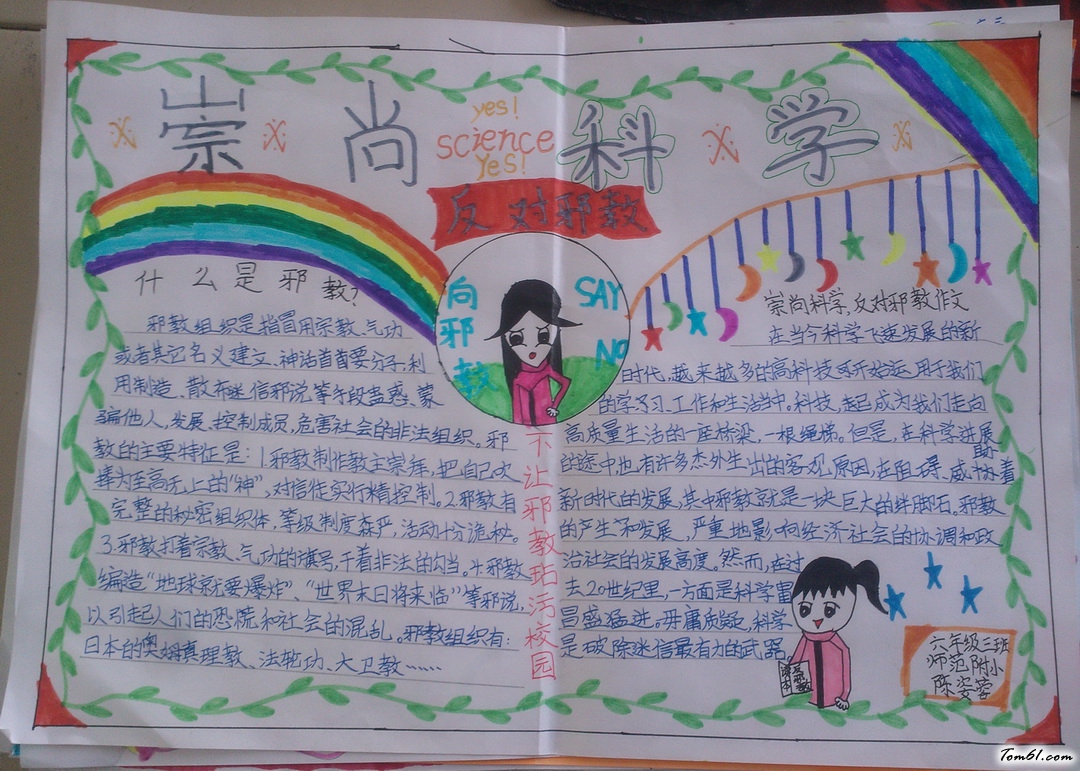 崇尚科学
yes!
science
Yes!
反对邪教
向邪教
SAY NO
不让邪教玷污校园
什么是邪教?
邪教组织是指冒用宗教、气功
或者其它名义建立、神话首要分子,利
用制造、散布迷信邪说等手段蛊惑、蒙
骗他人,发展、控制成员,危害社会的非法组织。邪
教的主要特征是:1.邪教制作教主崇拜,把自己吹
捧为至高无上的“神”,对信徒实行精控制。2.邪教有
完整的秘密组织体,等级制度森严,活动十分诡秘。
3.邪教打着宗教、气功的旗号,干着非法的勾当。4.邪教
编造“地球就要爆炸”、“世界末日将来临”等邪说,
以引起人们的恐慌和社会的混乱。邪教组织有:
日本的奥姆真理教、法轮功、大卫教……
崇尚科学,反对邪教作文
在当今科学飞速发展的新
时代,越来越多的高科技开始运用于我们
的学习、工作和生活当中,科技,起成为我们走向
高质量生活的一座桥梁,一根绳梯。但是,在科学进展
的途中也有许多杰外生出的客观原因在阻碍、威胁着
新时代的发展,其中邪教就是一块巨大的绊脚石,邪教
的产生和发展,严重地影响经济社会的协调和政
治社会的发展高度。然而,在过
去20世纪里,一方面是科学
昌盛猛进。毋庸质疑,科学
是破除迷信最有力的武器。
六年级三班
师范附小
陈姿蓉
Tom61.com